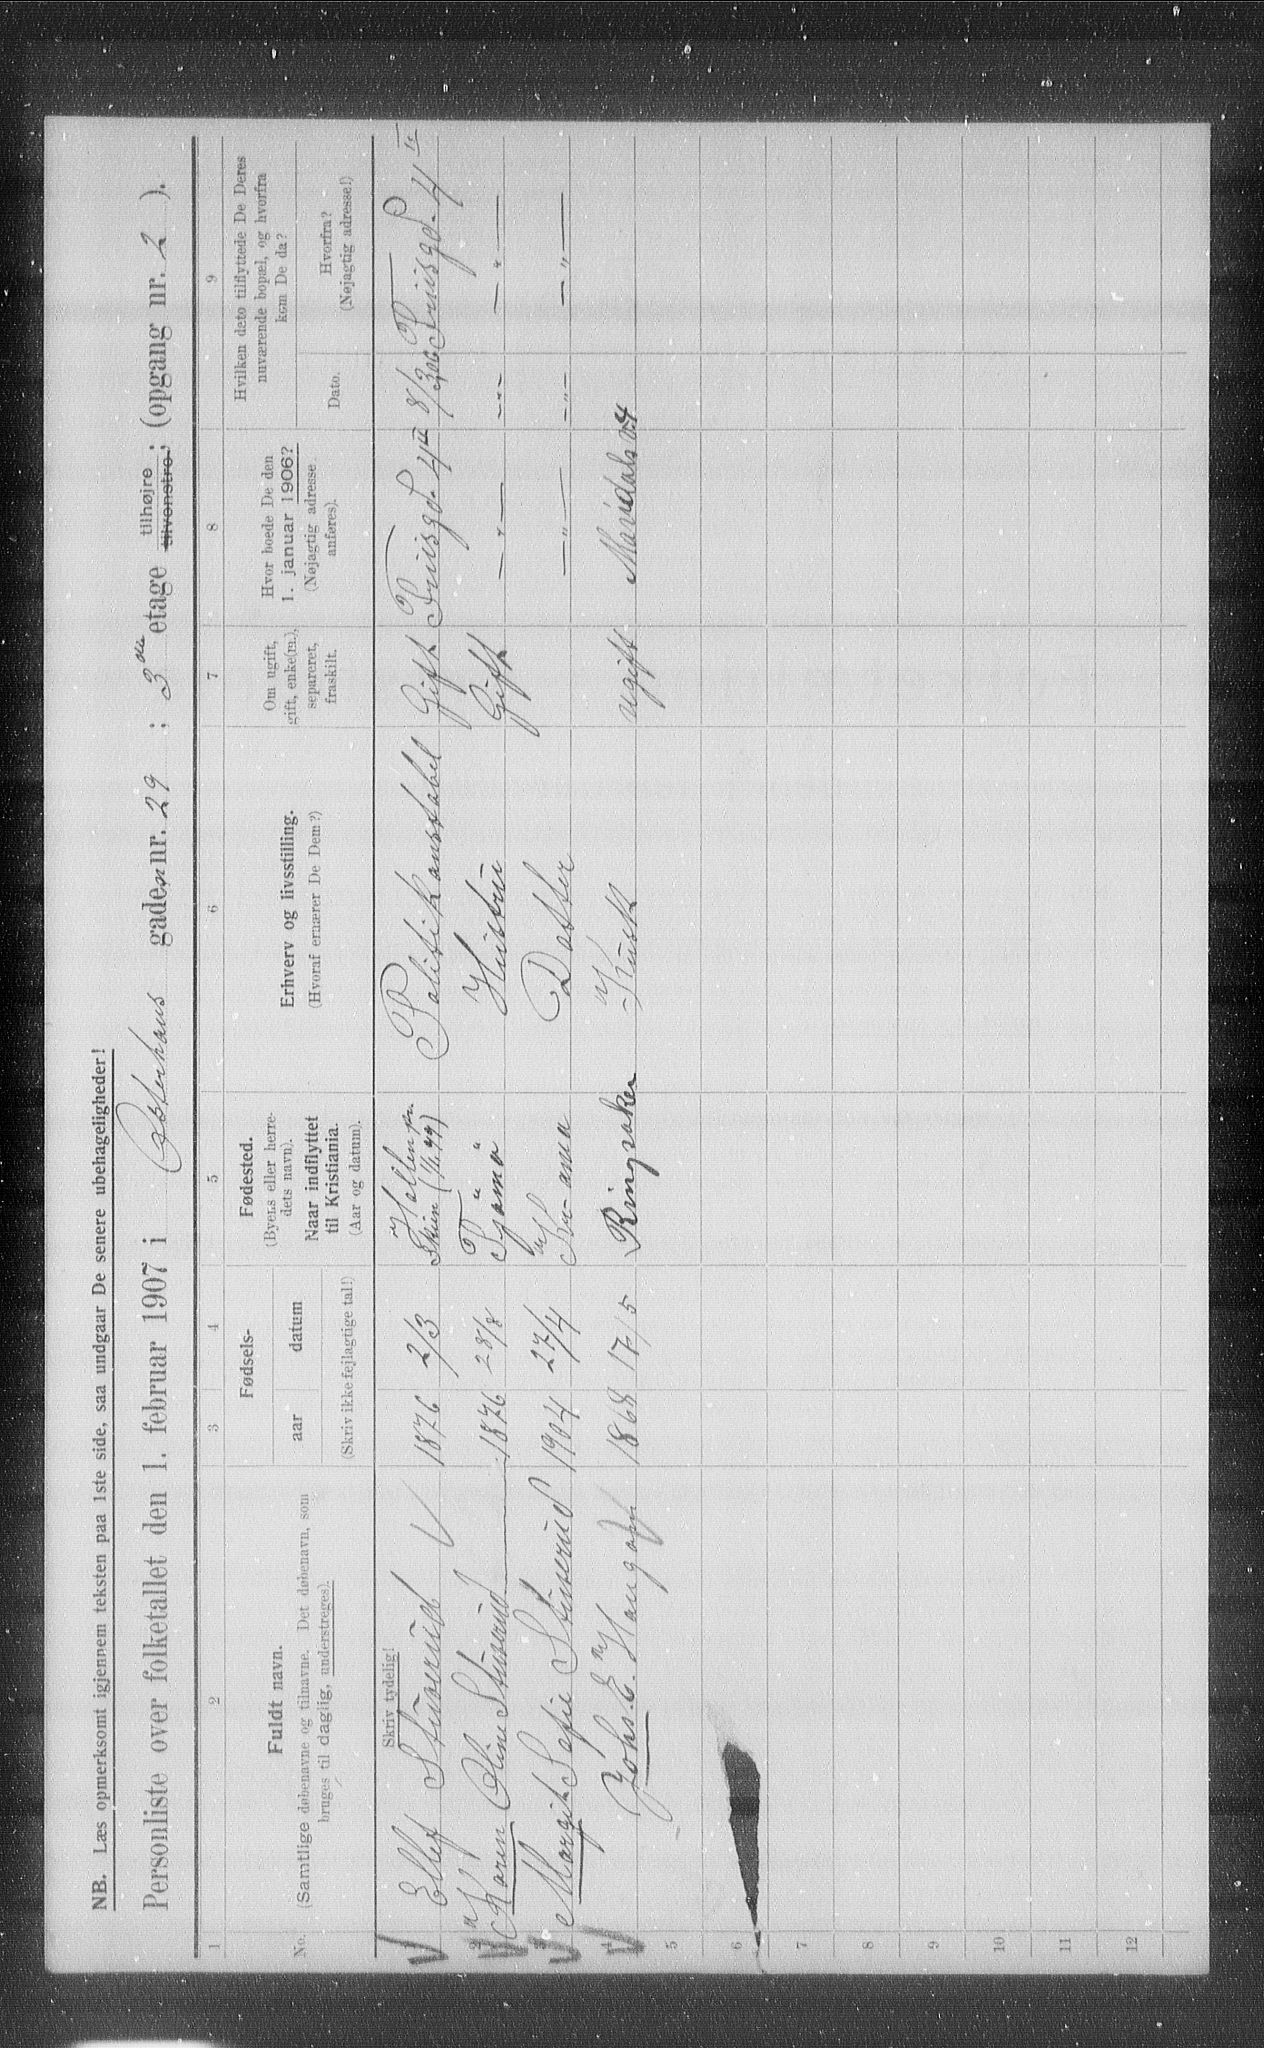 NB. Læs opmerksomt igjennem teksten paa 1ste side, saa undgaar De senere ubehageligheder!
Personliste over folketallet den 1. februar 1907 i Østerhaus gaden nr. 29 ; 3die etage tilhøjre tilvenstre ; (opgang nr. 2 ).
1 2 3 4 5 6 7 8 9
No.
Fuldt navn.
(Samtlige døbenavne og tilnavne. Det døbenavn, som
bruges til daglig, understreges).
Fødsels-
aar datum
(Skriv ikke fejlagtige tal!)
Fødested.
(Byens eller herre-
dets navn).
Naar indflyttet
til Kristiania.
(Aar og datum).
Erhverv og livsstilling.
(Hvoraf ernærer De Dem?)
Om ugift,
gift, enke(m.),
separeret,
fraskilt.
Hvor boede De den
1. januar 1906?
(Nøjagtig adresse
anføres).
Hvilken dato tilflyttede De Deres
nuværende bopæl, og hvorfra
kom De da?
Dato.
Hvorfra?
(Nøjagtig adresse!)
Skriv tydelig!
Ellef Stuverud 1876 2/3 Skien Politikonstabel Gift Friisgd. 4 II 8/3 06 Friisgd. 4 II
2 Karen Oline Stuverud 1876 28/8 Tjømø Hustru Gift — " — - " - — " —
3 Margit Sofie Stuverud 1904 27/4 Kr-ania Datter — " — - " - — " —
4 Johs. E. Haugen 1868 17/5 Ringsaker Kusk ugift Maridalsv. 4
5
6
7
8
9
10
11
12